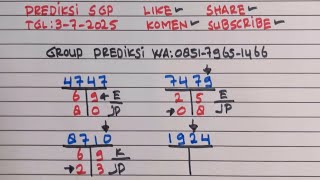 PREDIKSI SGP LIKE SHARE
TGL:3-7-2025 KOMEN SUBSCRIBE
GROUP PREDIKSI WA:0851-7965-1466
4747 7479
6 9 E 2 5 E
8 0 JP 0 8 JP
8710 1924
6 9 K
2 3 JP